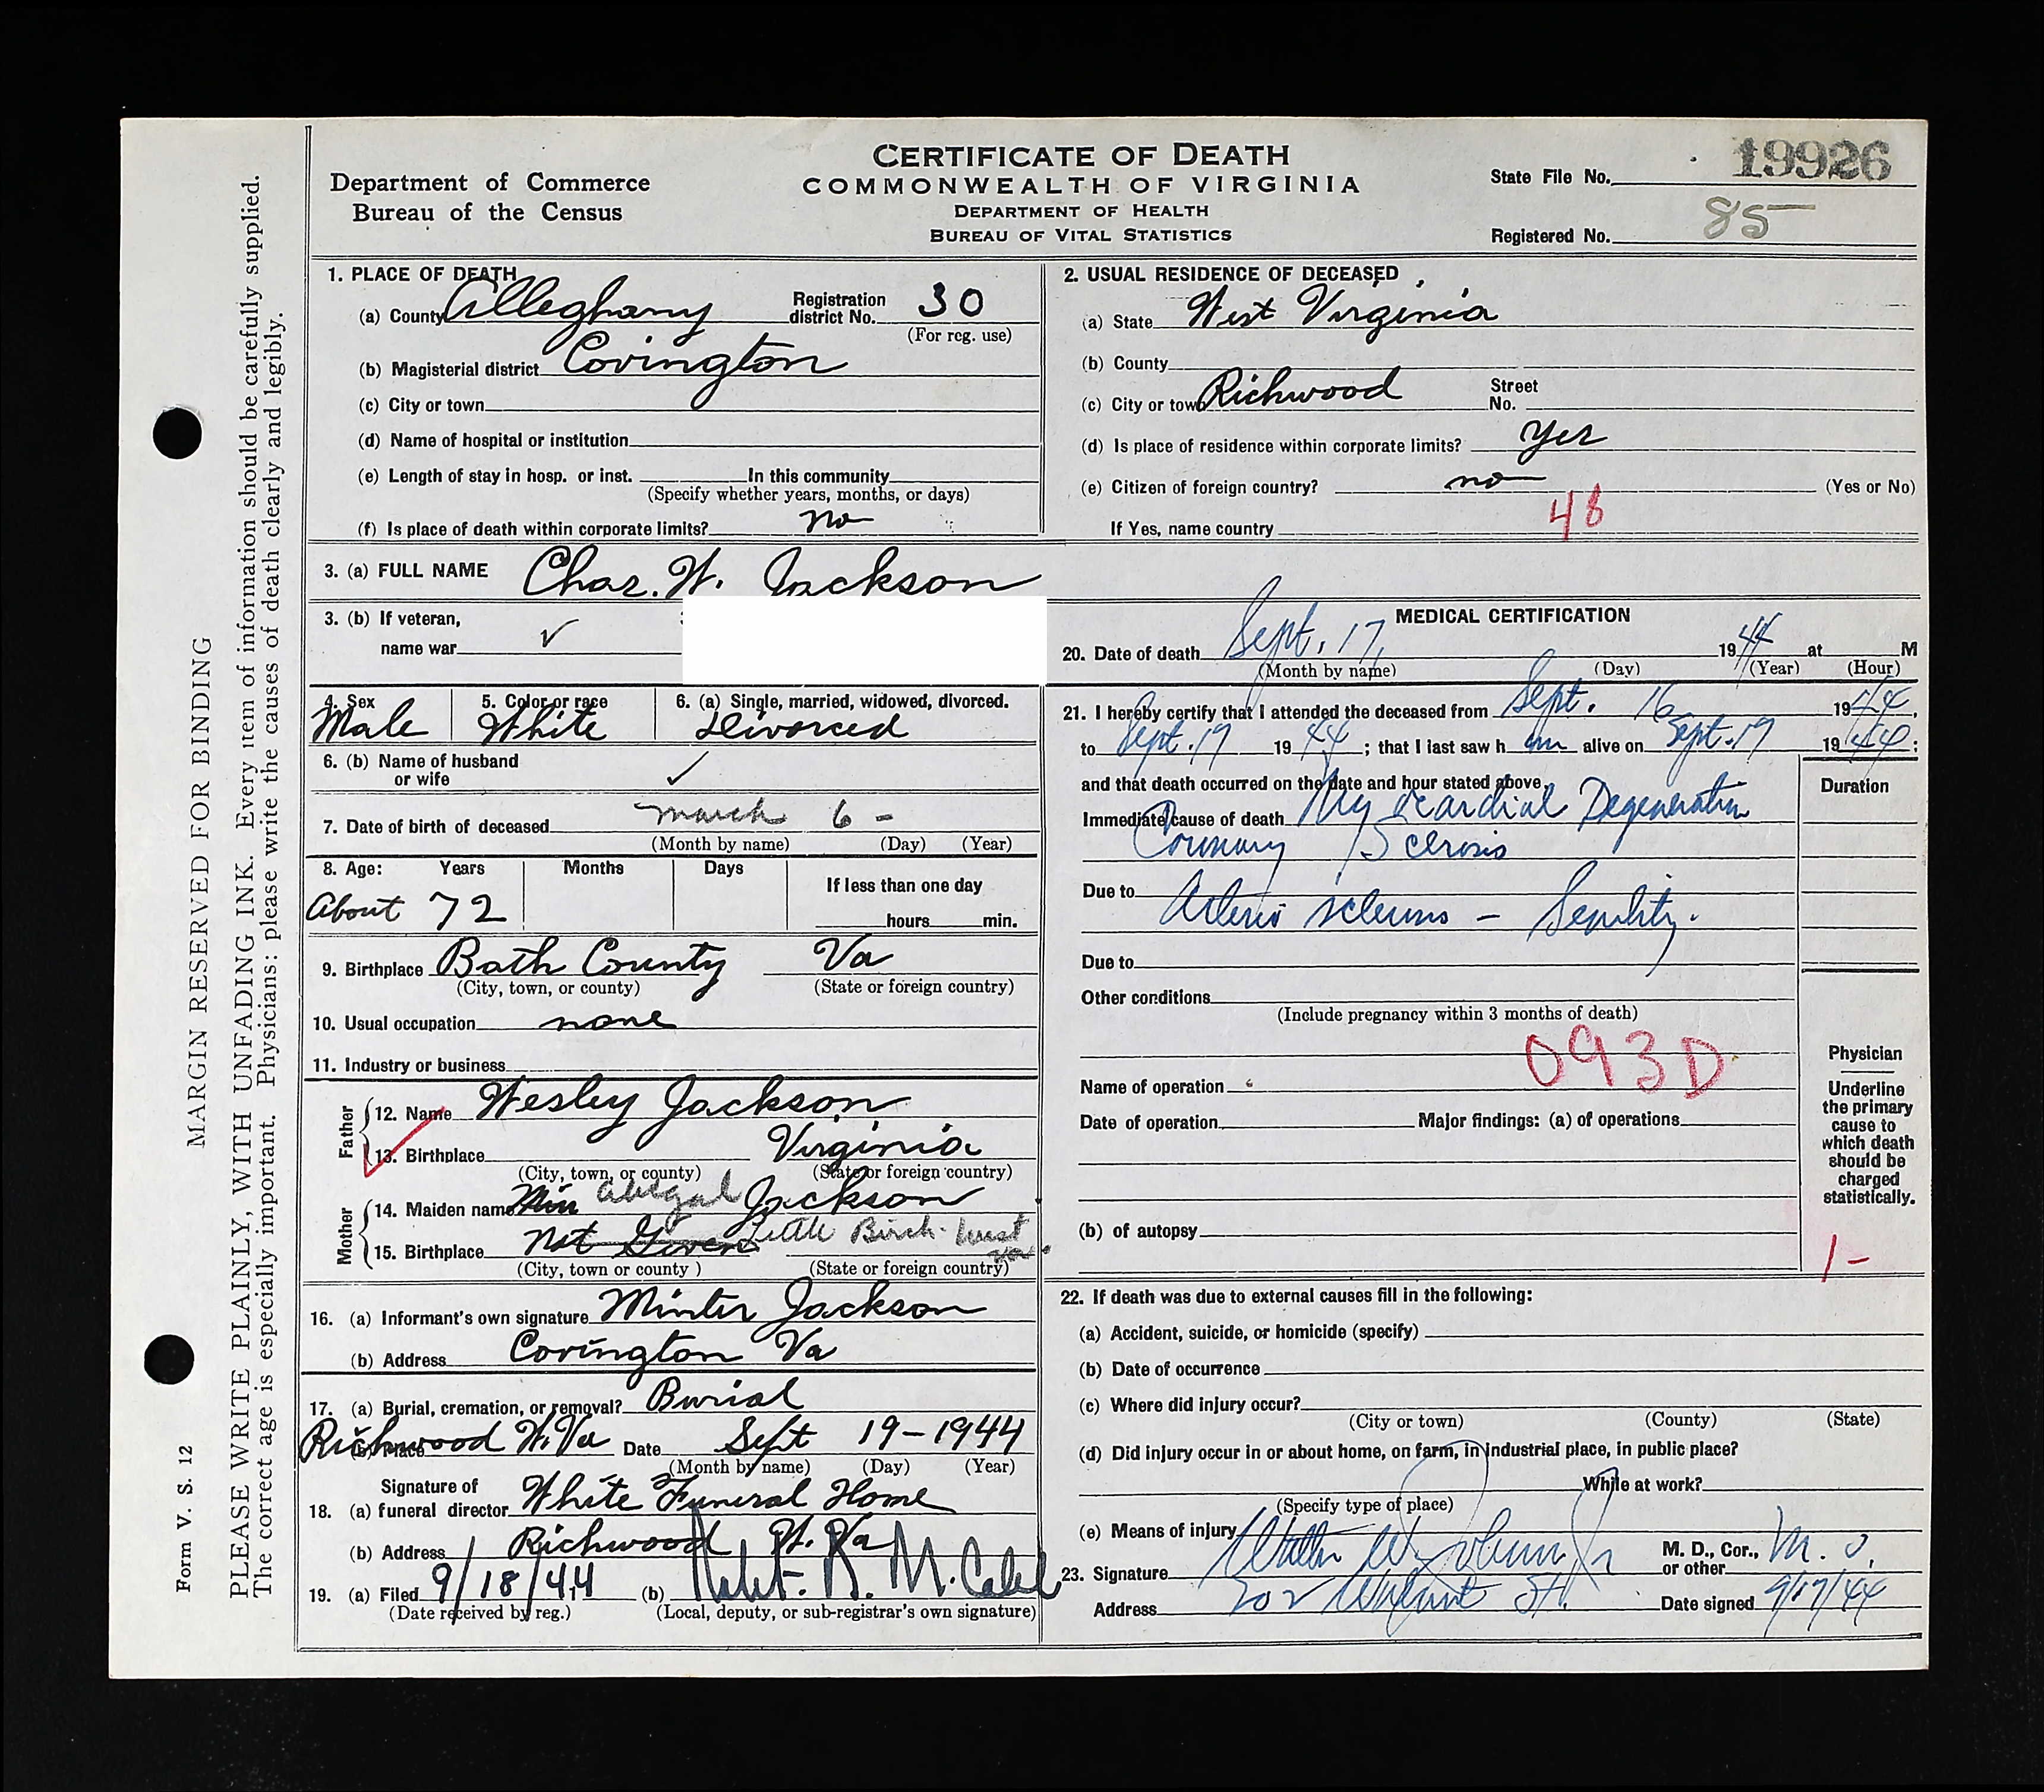 CERTIFICATE OF DEATH
COMMONWEALTH OF VIRGINIA
DEPARTMENT OF HEALTH
BUREAU OF VITAL STATISTICS
Department of Commerce
Bureau of the Census
State File No. 19926
Registered No. 85
MARGIN RESERVED FOR BINDING
PLEASE WRITE PLAINLY, WITH UNFADING INK. Every item of information should be carefully supplied.
The correct age is especially important. Physicians: please write the causes of death clearly and legibly.
Form V. S. 12
1. PLACE OF DEATH
(a) County Alleghany Registration district No. 30
(For reg. use)
(b) Magisterial district Covington
(c) City or town
(d) Name of hospital or institution
(e) Length of stay in hosp. or inst. In this community
(Specify whether years, months, or days)
(f) Is place of death within corporate limits? no
2. USUAL RESIDENCE OF DECEASED
(a) State West Virginia
(b) County
(c) City or town Richwood Street No.
(d) Is place of residence within corporate limits? Yes
(e) Citizen of foreign country? no (Yes or No)
If Yes, name country 48
3. (a) FULL NAME Chas. W. Jackson
3. (b) If veteran, name war ✓
4. Sex Male
5. Color or race White
6. (a) Single, married, widowed, divorced. Divorced
6. (b) Name of husband or wife ✓
7. Date of birth of deceased March 6 -
(Month by name) (Day) (Year)
8. Age: Years Months Days If less than one day
About 72 hours min.
9. Birthplace Bath County Va
(City, town, or county) (State or foreign country)
10. Usual occupation none
11. Industry or business
Father
12. Name Wesley Jackson
13. Birthplace Virginia
(City, town, or county) (State or foreign country)
Mother
14. Maiden name Abigal Jackson
15. Birthplace Not Given Little Birch West Va.
(City, town or county) (State or foreign country)
16. (a) Informant's own signature Minter Jackson
(b) Address Covington Va
17. (a) Burial, cremation, or removal? Burial
(b) Place Richwood W.Va Date Sept 19-1944
(Month by name) (Day) (Year)
18. (a) Signature of funeral director White Funeral Home
(b) Address Richwood W. Va
19. (a) Filed 9/18/44 (b) Robt. B. McCaleb
(Date received by reg.) (Local, deputy, or sub-registrar's own signature)
MEDICAL CERTIFICATION
20. Date of death Sept. 17, 1944 at M
(Month by name) (Day) (Year) (Hour)
21. I hereby certify that I attended the deceased from Sept. 16 1944,
to Sept. 17 1944; that I last saw him alive on Sept. 17 1944;
and that death occurred on the date and hour stated above.
Duration
Immediate cause of death Myocardial Degeneration
Coronary Sclerosis
Due to
Arterio sclerosis - Senility.
Due to
Other conditions
(Include pregnancy within 3 months of death)
093D
Name of operation
Date of operation Major findings: (a) of operations
(b) of autopsy
Physician
Underline the primary cause to which death should be charged statistically.
1-
22. If death was due to external causes fill in the following:
(a) Accident, suicide, or homicide (specify)
(b) Date of occurrence
(c) Where did injury occur?
(City or town) (County) (State)
(d) Did injury occur in or about home, on farm, in industrial place, in public place?
While at work?
(Specify type of place)
(e) Means of injury
23. Signature M. D., Cor., or other M.D.
Address 202 Walnut St. Date signed 9/17/44